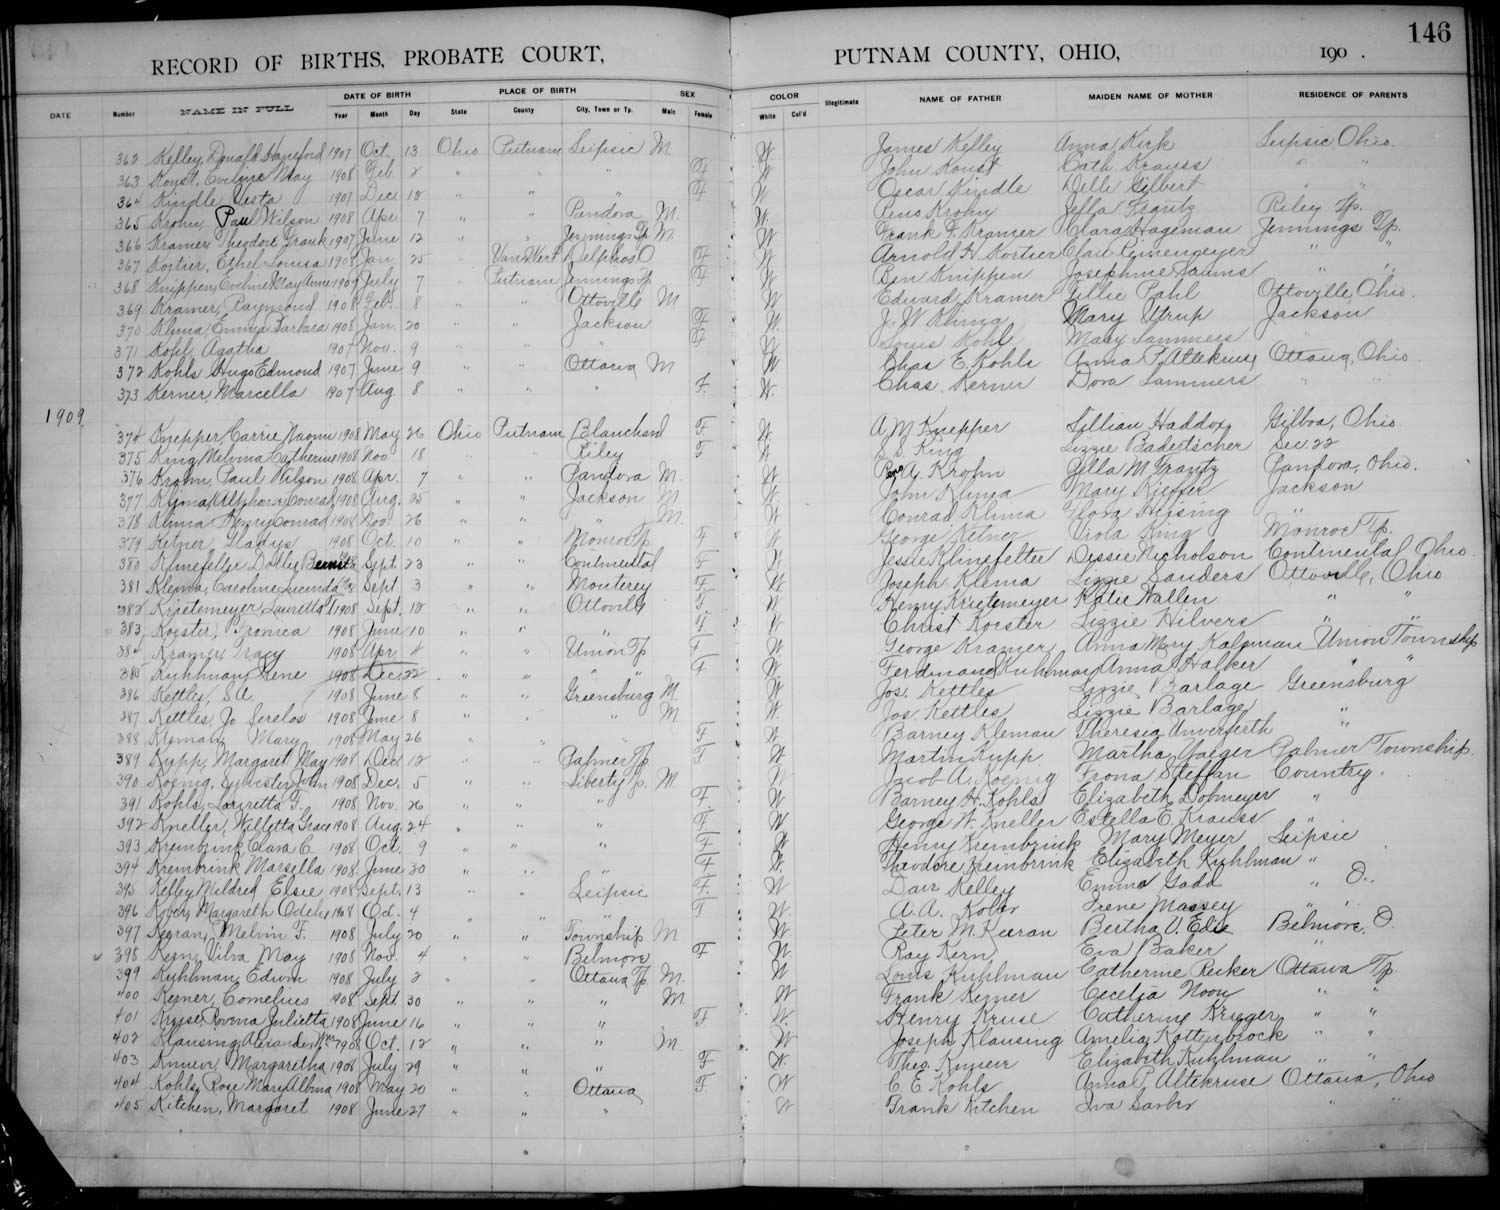 146
RECORD OF BIRTHS, PROBATE COURT, PUTNAM COUNTY, OHIO, 190 .
DATE Number NAME IN FULL DATE OF BIRTH Year Month Day PLACE OF BIRTH State County City, Town or Tp. SEX Male Female COLOR White Col'd Illegitimate NAME OF FATHER MAIDEN NAME OF MOTHER RESIDENCE OF PARENTS
362 Kelley, Donald 1907 Oct. 13 Ohio Putnam Leipsic M W. James Kelley Anna Kirk Leipsic, Ohio.
363 Eveline May 1908 Feb. 2 " " " F W John Cath Krauss " "
364 Kindle Vesta 1907 Dec. 18 " " " F W Oscar Kindle Delle Gilbert " "
365 Krohn, Paul Wilson 1908 Apr. 7 " " Pandora M. W. Reno Krohn Riley Tp.
366 Kramer, Theodore Frank 1907 June 12 " " Jennings Tp M. W Frank F. Kramer Clara Hageman Jennings Tp.
367 Kortier, Ethel Louisa 1908 Jan. 25 " Van Wert Delphos O F W Arnold H Kortier " "
368 Knippen, Eveline May Anna July 7 " Putnam Jennings Tp F W Ben Knippen Josephine " "
369 Kramer, Raymond 1908 Feb. 8 " " Ottoville M. W Edward Kramer Tillie Pahl Ottoville, Ohio.
370 Klima, Emma Barbara 1908 Jan. 20 " " Jackson F W. J. W. Klima Mary Utrup Jackson
371 Kohl, Agatha 1907 Nov. 9 " " " F W Louis Kohl Mary Lammers "
372 Kohls Hugo Edmond 1907 June 9 " " Ottawa M W Chas E. Kohls Anna P. Altekruse Ottawa, Ohio.
373 Kerner, Marcella 1907 Aug. 8 " " " F. W. Chas. Kerner Dora Lammers " "
1909.
374 Knepper, Carrie Naomi 1908 May 26 Ohio Putnam Blanchard F W. A. M. Knepper Lillian Haddox Gilboa, Ohio.
375 King, Melvina Catherine 1908 Nov 18 " " Riley F W King Lizzie Badertscher Sec. 22
376 Krohn, Paul Wilson 1908 Apr. 7 " " Pandora M W Reno A. Krohn Della M. Pandora, Ohio.
377 Klima, Alphonse Conrad 1908 Aug. 25 " " Jackson M W John Klima Mary Kieffer Jackson
378 Klima Henry Conrad 1908 Nov. 26 " " " M. W Conrad Klima Flora "
379 Ketner, Gladys 1908 Oct. 10 " " Monroe Tp. F W George Ketner Viola King Monroe Tp.
380 Klinefelter Dolly 1908 Sept. 23 " " Continental F W Jessie Klinefelter Dessie Nicholson Continental, Ohio.
381 Klema, Caroline Lucinda 1908 Sept. 3 " " Monterey F W Joseph Klema Lizzie Sanders Ottoville, Ohio
382 Krietemeyer, Lauretta T. 1908 Sept. 18 " " Ottoville F W Henry Krietemeyer Katie Wallen " "
383 Koester, Fronica 1908 June 10 " " " F. W Christ Koester Lizzie Hilvers " "
384 Kramer, Tracy 1908 Apr. 4 " " Union Tp F W George Kramer Anna Mary Union Township
385 Kuhlman, Rene 1908 Dec. 22 " " " F W Ferdinand Kuhlman Anna Halker " "
386 Kettles, 1908 June 8 " " Greensburg M. W Jos. Kettles Lizzie Barlage Greensburg
387 Kettles, Jo 1908 June 8 " " " M W. Jos. Kettles Lizzie Barlage "
388 Kleman, Mary 1908 May 26 " " " F. W Barney Kleman Theresia Unverferth "
389 Kupp, Margaret May 1908 Dec. 12 " " Palmer Tp F W Martin Kupp Martha Yaeger Palmer Township.
390 Koenig, Sylvester John 1908 Dec. 5 " " Liberty Tp. M W Jacob A. Koenig Frona Steffan Country.
391 Kohls, Loretta F. 1908 Nov. 26 " " " F. W Barney H. Kohls Elizabeth Dobmeyer "
392 Kneller, Willetta Grace 1908 Aug. 24 " " " F. W George W. Kneller Estella E. Krauss
393 Kreinbrink, Clara C. 1908 Oct. 9 " " " F W Henry Kreinbrink Mary Meyer Leipsic
394 Kreinbrink Marsella 1908 June 30 " " " F W. Theodore Kreinbrink Elizabeth Kuhlman "
395 Kelley Mildred Elsie 1908 Sept. 13 " " Leipsic F. W Kelley Emma " O.
396 Margareth 1908 Oct. 4 " " " F W. A. A. Irene Massey " "
397 Melvin F. 1908 July 20 " " Township M W. Peter M. Bertha V. Edie Belmore, O.
398 Kern, Vilva May 1908 Nov. 4 " " Belmore F W Ray Kern Eva Baker "
399 Kuhlman, Edwin 1908 July 2 " " Ottawa Tp. M. W Louis Kuhlman Catherine Recker Ottawa Tp.
400 Kerner, Cornelius 1908 Sept. 30 " " " M. W Frank Kerner Cecelia Noon " "
401 Kruse, Rovena Julietta 1908 June 16 " " " F W. Henry Kruse Catherine Krieger " "
402 Klausing, Alexander Wm 1908 Oct. 12 " " " M. W Joseph Klausing Amelia Kottenbrock " "
403 Margaretha 1908 July 29 " " " F W. Theo. Elizabeth Kuhlman " "
404 Kohls, Rose Mary Albina 1908 May 20 " " Ottawa F. W C. E. Kohls Anna P. Altekruse Ottawa, Ohio
405 Kitchen, Margaret 1908 June 27 " " " W Frank Kitchen Iva Sarber " "